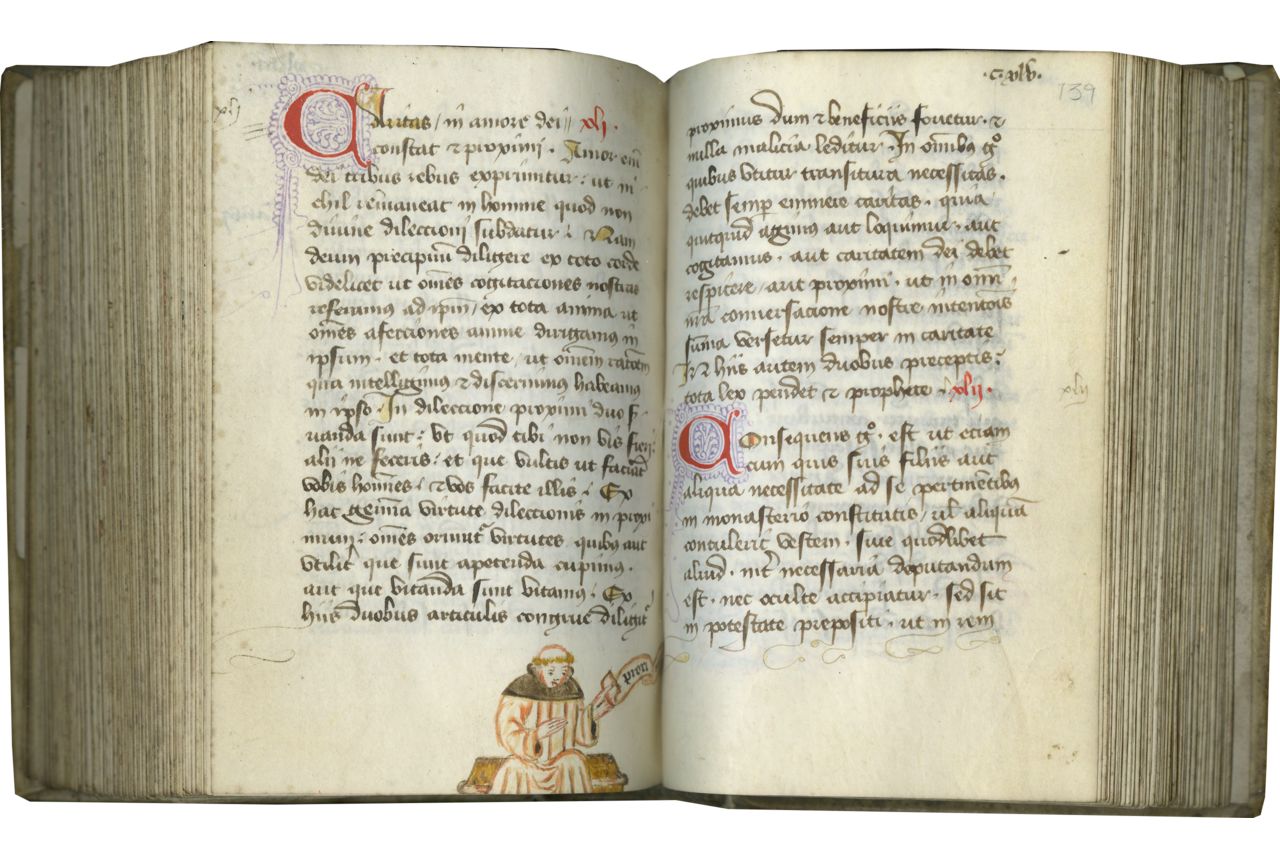 xlj
Caritas / in amore dei // xli ·
constat ⁊ proximi · Amor eni͞
dei tribus rebus exprimitur · ut ni
chil remaneat in homine quod non
diuine dileccioni subdatur · Nam
deum precipimur diligere ex toto corde
videlicet ut om̅es cogitaciones nostras
referamus ad ip̅m / ex tota anima ut
om̅es afecciones anime dirigamus in
ipsum · et tota mente / ut om̅em rac̅oem
qua intelligimus ⁊ discernimus habeamus
in ipso · In dileccione proximi duo s̅
uanda sunt : Vt quod tibi non vis fieri
alij ne feceris : et que vultis ut faciāt
vobis hom̅es · ⁊ vos facite illis · Ex
hac gemina virtute dileccionis in proxi
mum : om̅es oriunt᷑ virtutes quibus aut
vtilit̕ que sunt apetenda cupimus ·
aut que vitanda sunt vitamus · Ex
hijs duobus articulis congrue diligit᷑
proxi
· c · xlv ·
139
proximus dum ⁊ beneficijs fouetur · ⁊
nulla malicia leditur · In om̅ibus g̊
quibus vtitur transitura necessitas ·
debet semp̱ eminere caritas · quia
quitquid agimus aut loquimur · aut
cogitamus · aut caritatem dei debet
respicere / aut proximi · ut in om̅i
nr̅a conuersacione nostre intenc̅ois
su̅ma versetur semper in caritate
In hijs autem duobus preceptis :
tota lex pendet ⁊ prophete · xlij ·
xlij
Consequens g̊ · est ut eciam
cum quis suis filijs aut
aliqua necessitate ad se pertinētibus
in monasterio constitutis / ul̕ aliquā
contulerit vestem · siue quodlibet
aliud · int̕ necessaria deputandum
est · nec oculte accipiatur · sed sit
in potestate prepositi · ut in rem